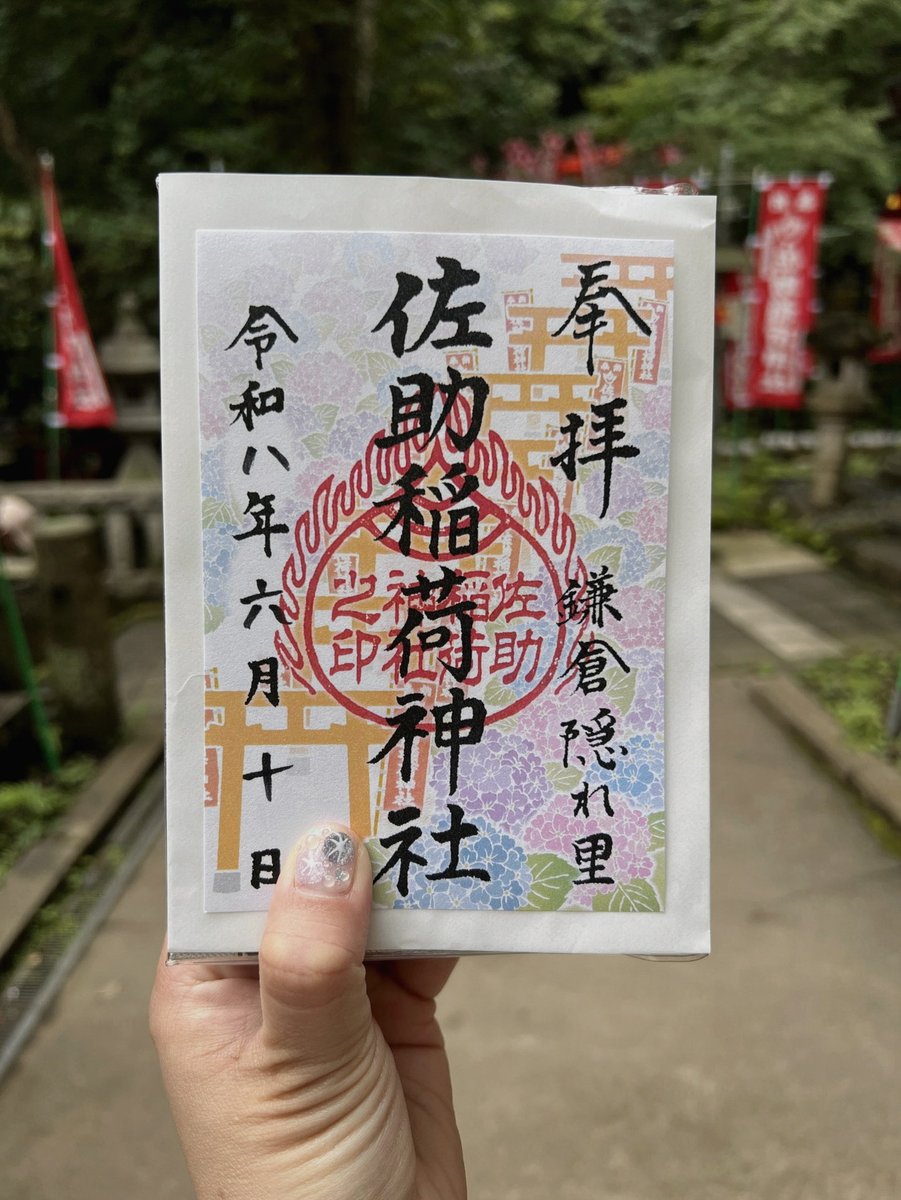 奉拝
鎌倉隠れ里
佐助稲荷神社
令和八年六月十日
佐助
稲荷
神社
之印